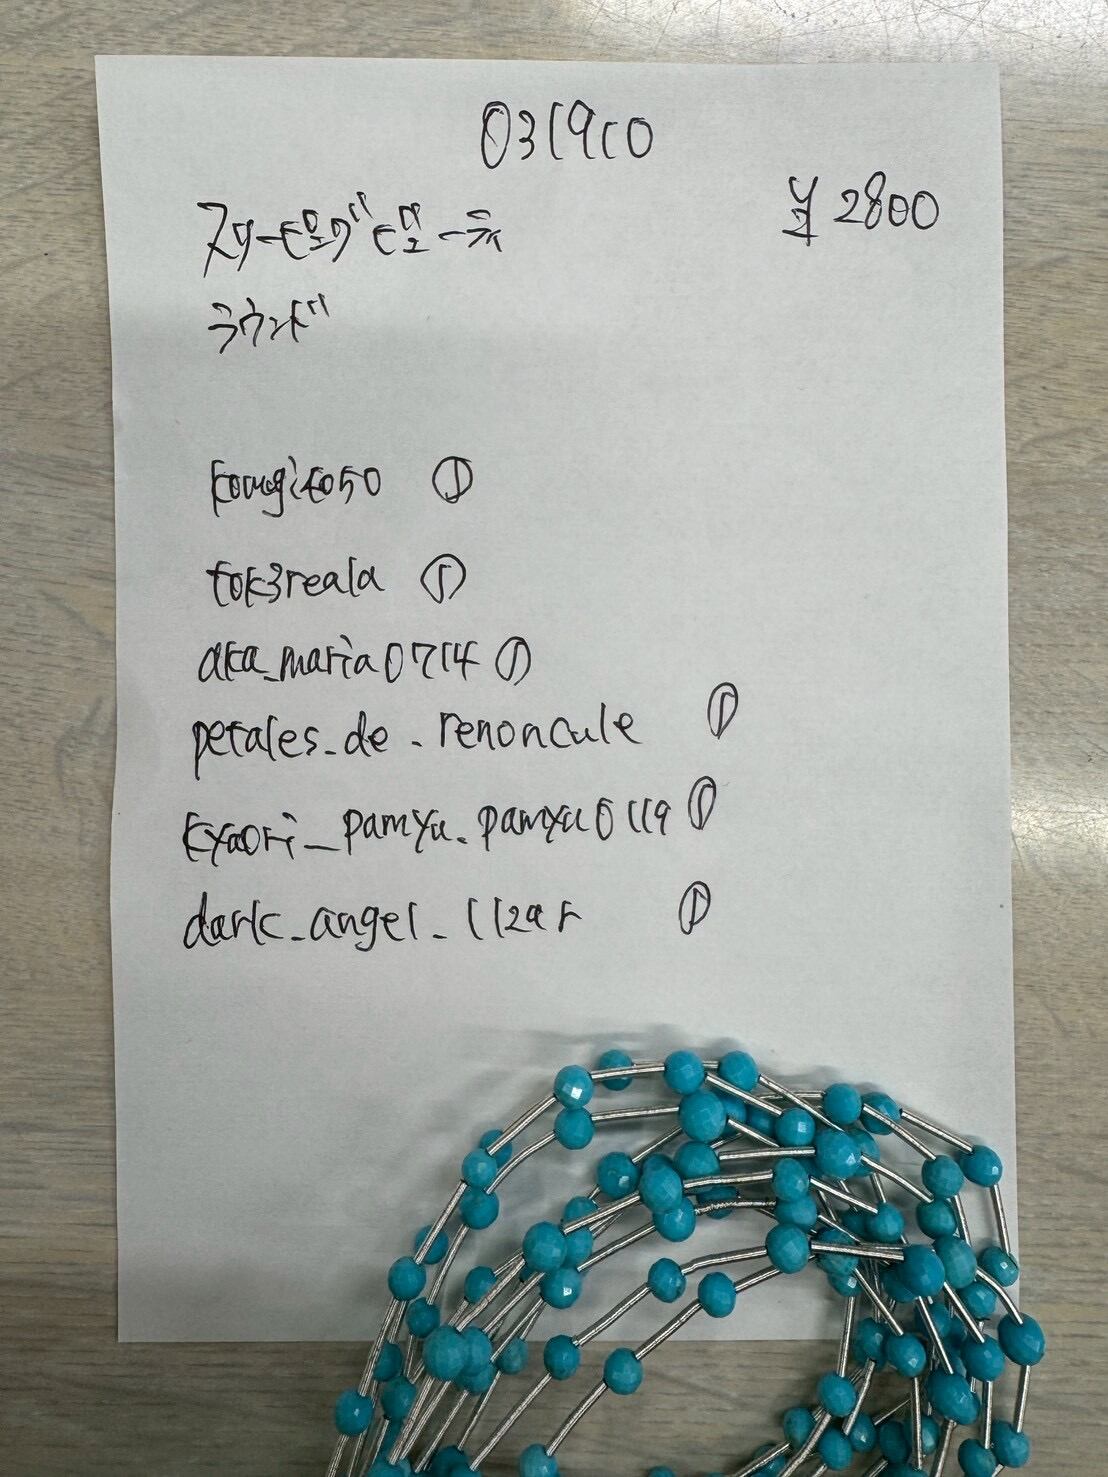 031910
¥2800
スリーピングビューティ
ラウンド
kougito050 ①
tok3reala ①
aka_maria0714 ①
petales_de_renoncule ①
kyaori_pamyu.pamyu0119 ①
dark_angel_112ar ①